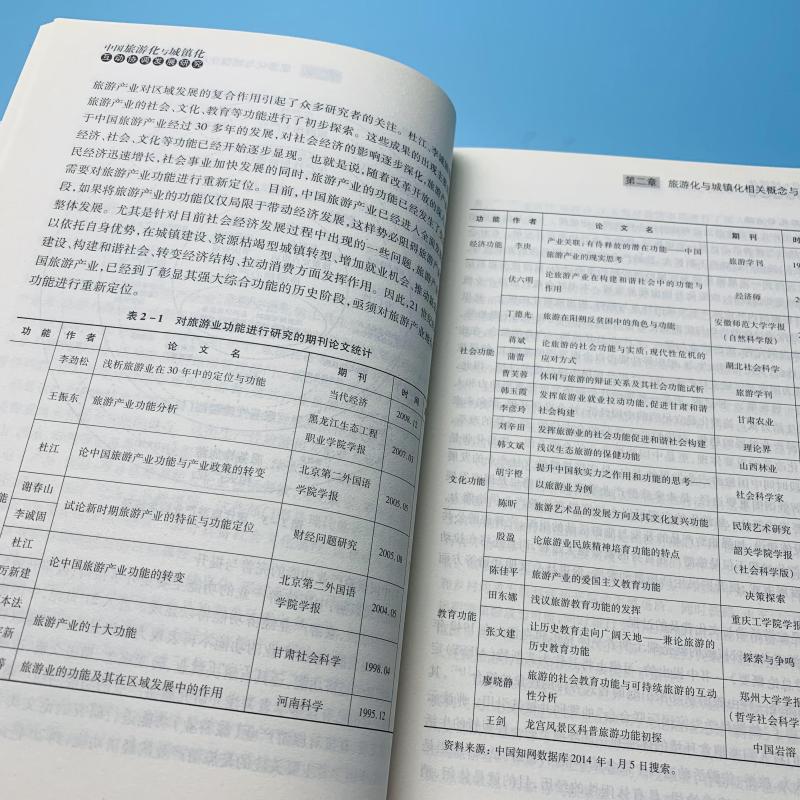 中国旅游化与城镇化
互动协调发展研究
旅游产业对区域发展的复合作用引起了众多研究者的关注。杜江、李
旅游产业的社会、文化、教育等功能进行了初步探索。这些成果的出现主
于中国旅游产业经过 30 多年的发展，对社会经济的影响逐步深化，旅游产
经济、社会、文化等功能已经开始逐步显现。也就是说，随着改革开放的深
民经济迅速增长，社会事业加快发展的同时，旅游产业的功能已经发生了
需要对旅游产业功能进行重新定位。目前，中国旅游产业已经进入全面发
段，如果将旅游产业的功能仅仅局限于带动经济发展，这样势必阻碍旅游产
整体发展。尤其是针对目前社会经济发展过程中出现的一些问题，旅游产
以依托自身优势，在城镇建设、资源枯竭型城镇转型、增加就业机会、推动新
建设、构建和谐社会、转变经济结构、拉动消费方面发挥作用。因此，21 世纪
国旅游产业，已经到了彰显其强大综合功能的历史阶段，亟须对旅游产业
功能进行重新定位。
表 2－1 对旅游业功能进行研究的期刊论文统计
功 能 作 者 论 文 名 期 刊 时 间
李劲松 浅析旅游业在 30 年中的定位与功能 当代经济 2008.12
王振东 旅游产业功能分析 黑龙江生态工程
职业学院学报 2007.03
杜江 论中国旅游产业功能与产业政策的转变 北京第二外国语
学院学报 2005.05
能 谢春山
李诚固 试论新时期旅游产业的特征与功能定位 财经问题研究 2005.08
杜江
厉新建 论中国旅游产业功能的转变 北京第二外国语
学院学报 2004.05
本法
新 旅游产业的十大功能 甘肃社会科学 1998.04
等 旅游业的功能及其在区域发展中的作用 河南科学 1995.12
第二章 旅游化与城镇化相关概念与
功 能 作 者 论 文 名 期 刊 时
经济功能 李庚 产业关联：有待释放的潜在功能——中国
旅游产业的现实思考 旅游学刊 19
社会功能 伏六明 论旅游产业在构建和谐社会中的功能与
作用 经济师 20
丁德光 旅游在阳朔反贫困中的角色与功能 安徽师范大学学报
(自然科学版) 20
蒋斌
蒲蕾 论旅游的社会功能与实质：现代性危机的
应对方式 湖北社会科学
曹芙蓉 休闲与旅游的辩证关系及其社会功能试析 旅游学刊
韩玉霞
李彦玲 发挥旅游业就业拉动功能，促进甘肃和谐
社会构建 甘肃农业
刘辛田 发挥旅游业的社会功能促进和谐社会构建 理论界
韩文斌 浅议生态旅游的保健功能 山西林业
文化功能 胡宇橙 提升中国软实力之作用和功能的思考——
以旅游业为例 社会科学家
陈昕 旅游艺术品的发展方向及其文化复兴功能 民族艺术研究
教育功能 殷盈 论旅游业民族精神培育功能的特点 韶关学院学报
(社会科学版)
陈佳平 旅游产业的爱国主义教育功能 决策探索
田东娜 浅议旅游教育功能的发挥 重庆工学院学报
张文建 让历史教育走向广阔天地——兼论旅游的
历史教育功能 探索与争鸣
廖晓静 旅游的社会教育功能与可持续旅游的互动
性分析 郑州大学学报
(哲学社会科学
王剑 龙宫风景区科普旅游功能初探 中国岩溶
资料来源：中国知网数据库 2014 年 1 月 5 日搜索。